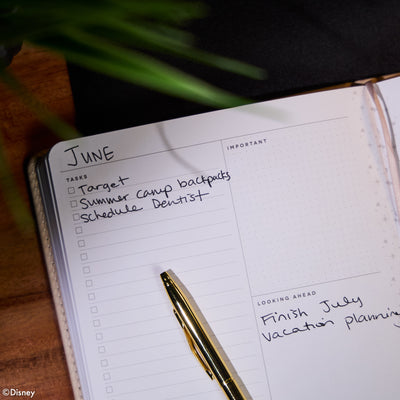 JUNE
TASKS
Target
Summer Camp backpacks
Schedule Dentist
IMPORTANT
LOOKING AHEAD
Finish July
vacation planning
©Disney